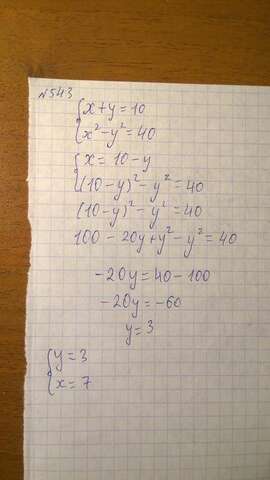 №543
{x+y=10
{x²-y²=40
{x=10-y
{(10-y)²-y²=40
(10-y)²-y²=40
100-20y+y²-y²=40
-20y=40-100
-20y=-60
y=3
{y=3
{x=7